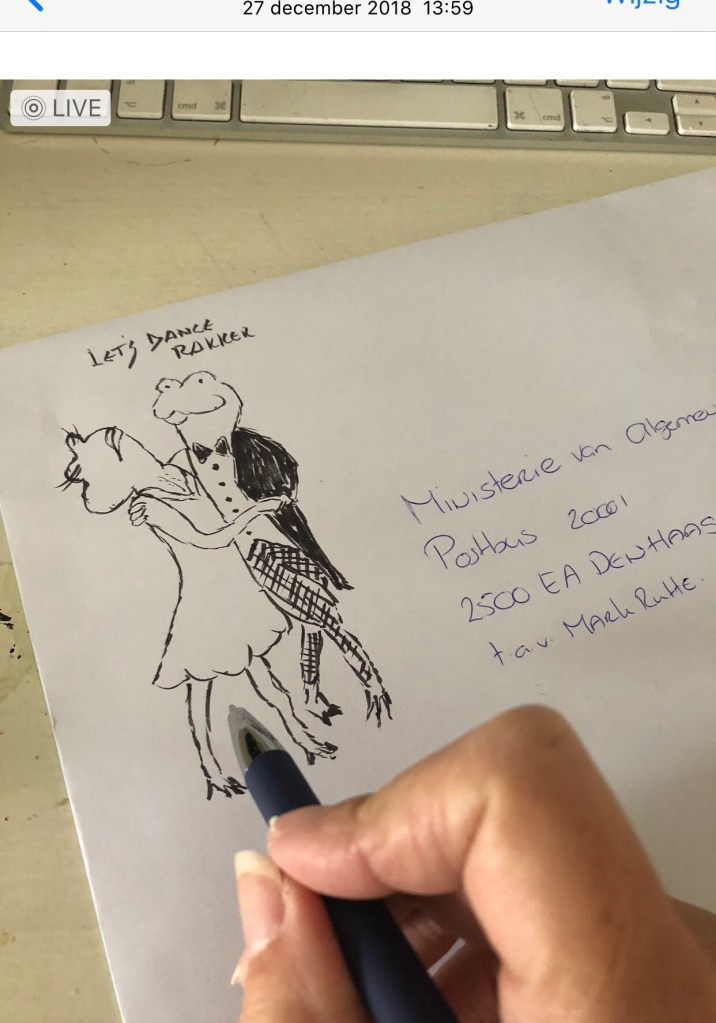 27 december 2018 13:59
Wijzig
LIVE
cmd
cmd
LET'S DANCE
RAKKER
Ministerie van Algemen
Postbus 20001
2500 EA DEN HAAG
t.a.v. MARK RUTTE.